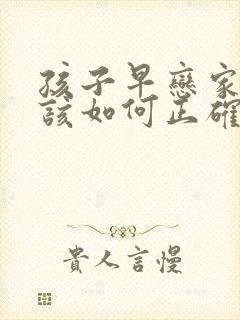 孩子早戀家
該如何正確
貴人言慢